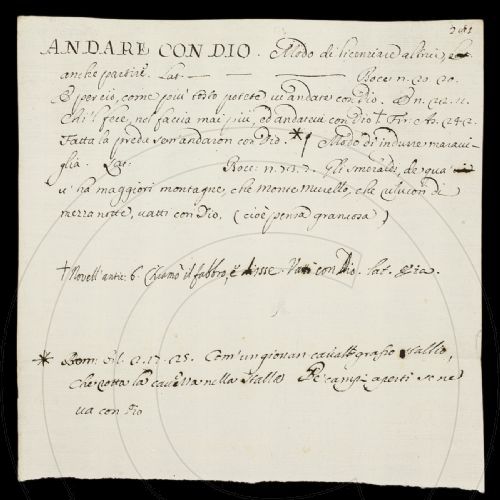 241
ANDARE CON DIO. Modo di licenziare altrui, et
anche partire. Lat. — — — Bocc. n. 20. 20.
E perciò, come più tosto potete vi andate con Dio. E n. 22. 12.
Chi 'l fece, nol faccia mai più, ed andatevi con Dio † Fir. As. 242.
Fatta la preda sen' andaron con Dio. * Modo di indurre maravi-
glia. Lat. Bocc. n. 73. 7. Gli smeraldi, de' qua
v' ha maggiori montagne, che Monte Murello, che rilucon di
mezza notte, vatti con Dio. (cioè pensa gran cosa)
† Novell. antic. 6. Chiamò il fabbro, e disse. Vatti con Dio. lat.
* Bern. Orl. 2. 17. 25. Com' un giovan cavallo grasso stallio,
Che rotta la cavezza nella stalla Pe' campi aperti se ne
va con Dio